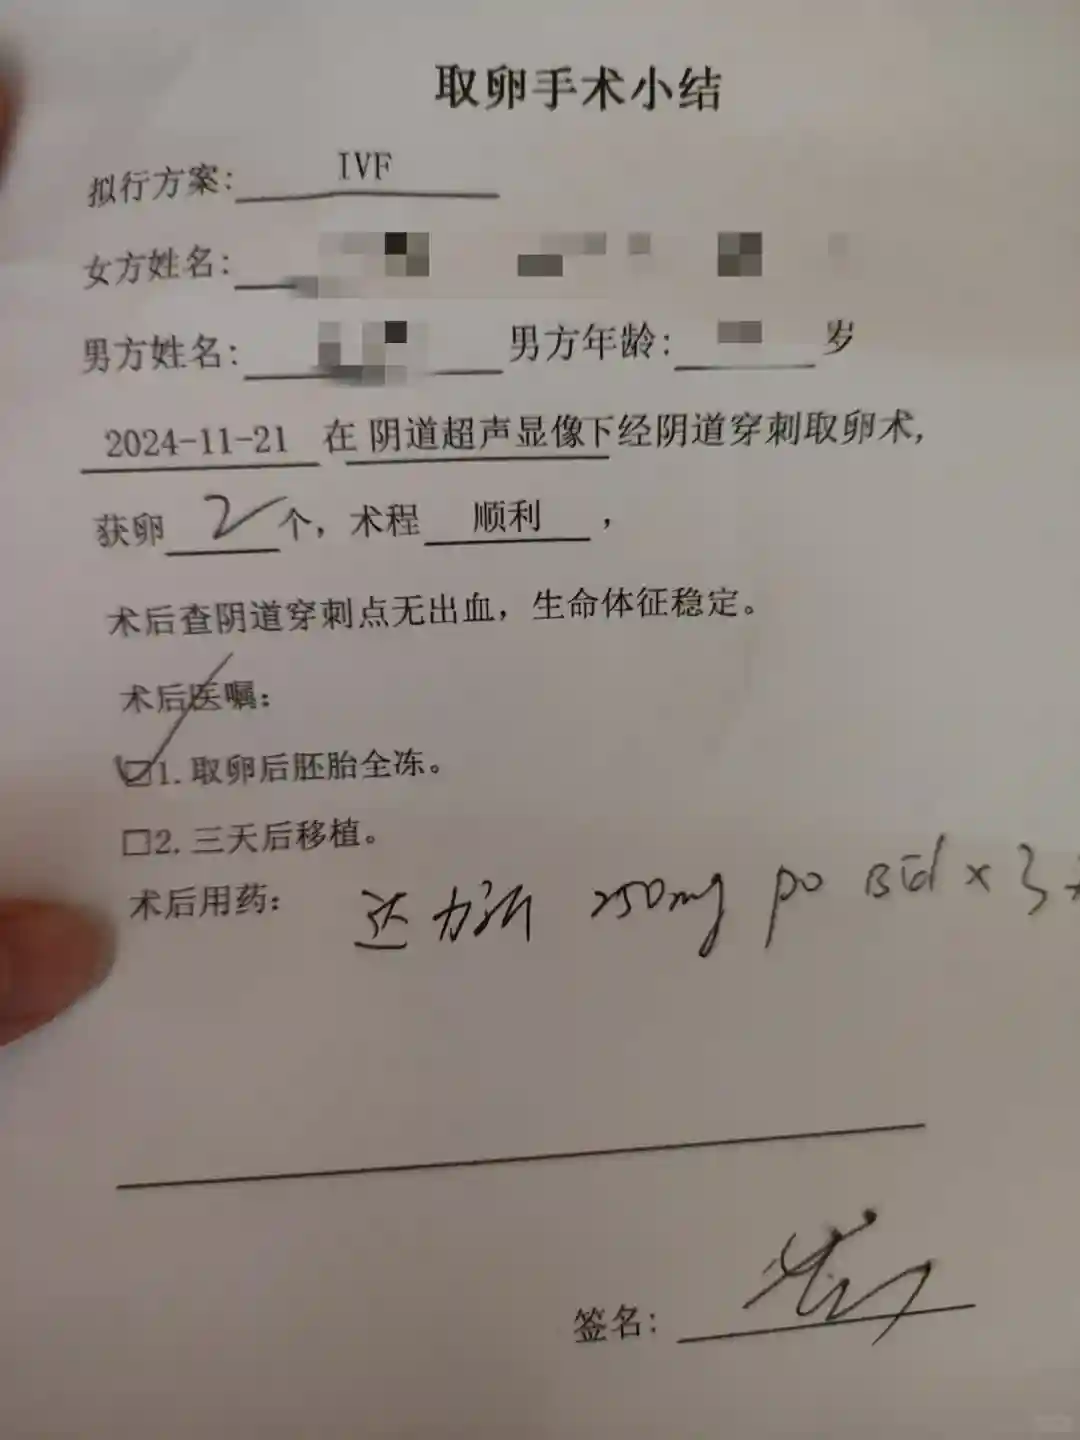 取卵手术小结
拟行方案: IVF
女方姓名:
男方姓名: 男方年龄: 岁
2024-11-21 在 阴道超声显像下经阴道穿刺取卵术,
获卵 2 个, 术程 顺利 ,
术后查阴道穿刺点无出血, 生命体征稳定。
术后医嘱:
☑1. 取卵后胚胎全冻。
□2. 三天后移植。
术后用药: 达力新 250mg po Bid × 3
签名: